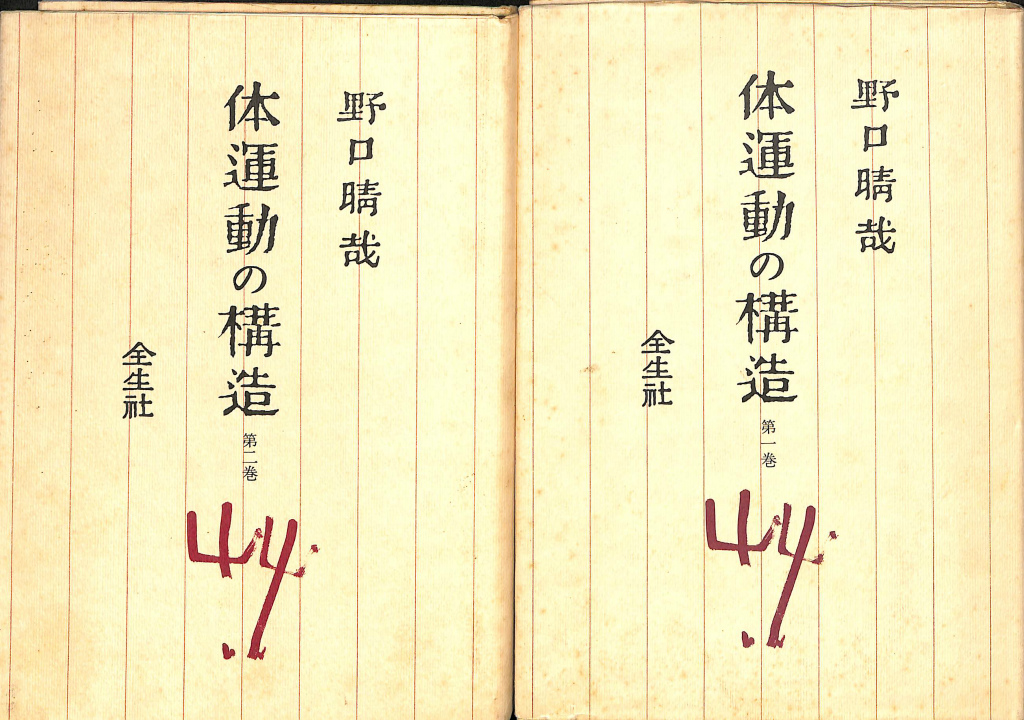 野口晴哉
体運動の構造 第一巻
全生社
野口晴哉
体運動の構造 第二巻
全生社